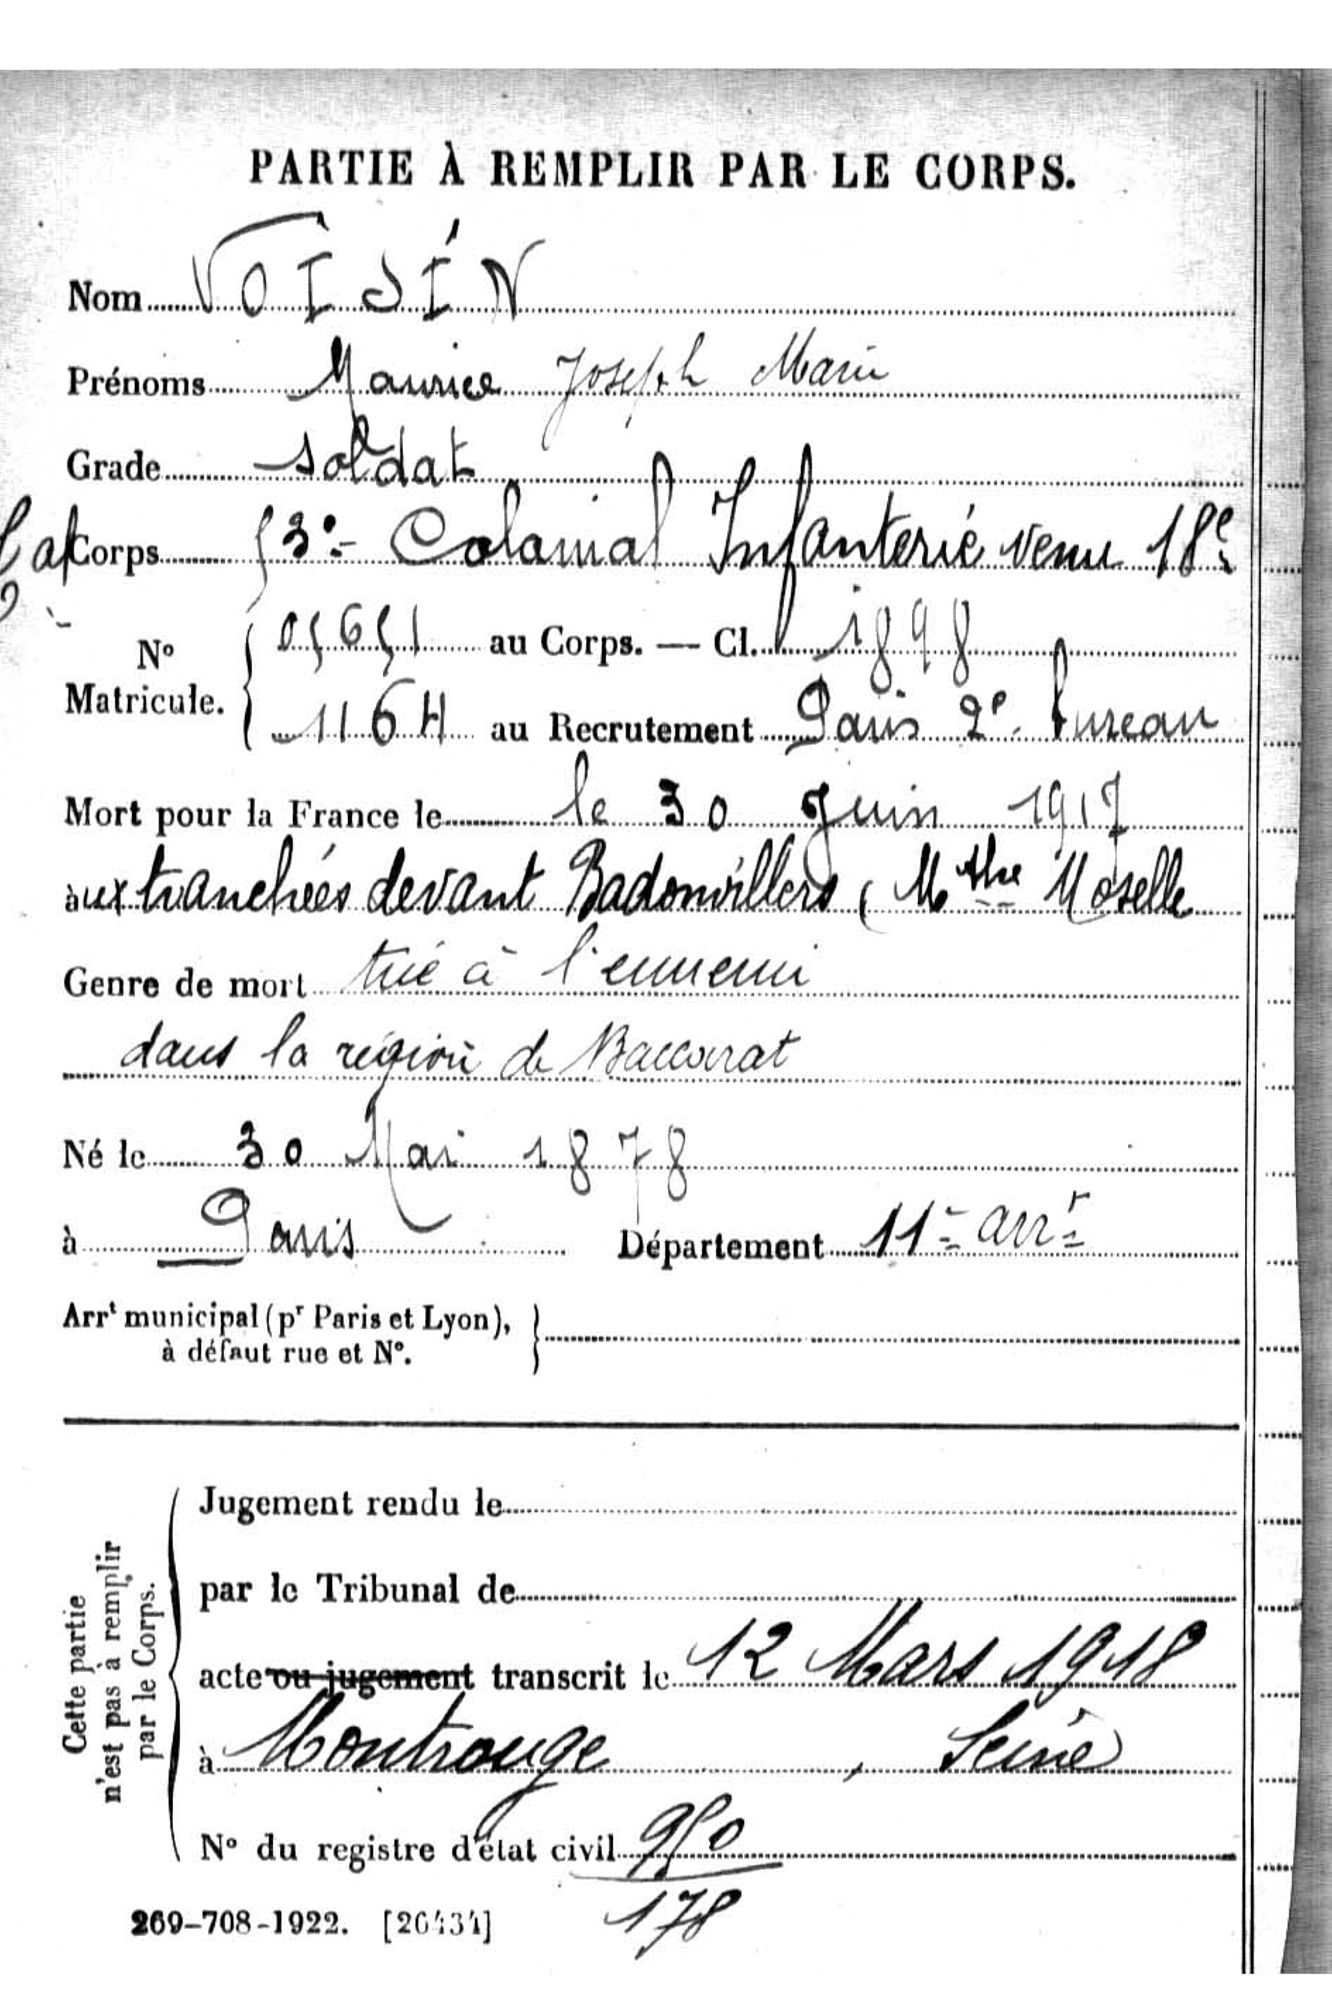 PARTIE À REMPLIR PAR LE CORPS.
Nom VOISIN
Prénoms Maurice Joseph Marie
Grade soldat
Corps { 3e Colonial Infanterie venu 18e
Nº Matricule. { 05651 au Corps. — Cl. 1898
1164 au Recrutement Paris 2e bureau
Mort pour la France le le 30 Juin 1917
aux tranchées devant Badonvillers (Mthe Moselle
Genre de mort tué à l'ennemi
dans la région de Baccarat
Né le 30 Mai 1878
à Paris Département 11e arrt
Arrt municipal (pr Paris et Lyon), }
à défaut rue et Nº.
Cette partie
n'est pas à remplir
par le Corps.
Jugement rendu le
par le Tribunal de
acte ou jugement transcrit le 12 Mars 1918
à Montrouge, Seine
Nº du registre d'état civil 950
178
269-708-1922. [26434]